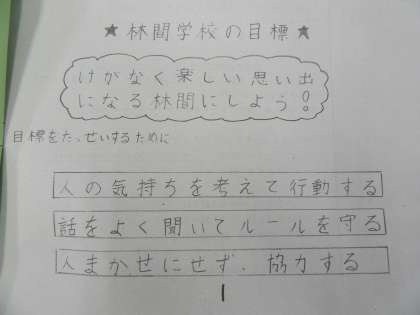 ★林間学校の目標★
けがなく楽しい思い出
になる林間にしよう!
目標をたっせいするために
人の気持ちを考えて行動する
話をよく聞いてルールを守る
人まかせにせず、協力する
1